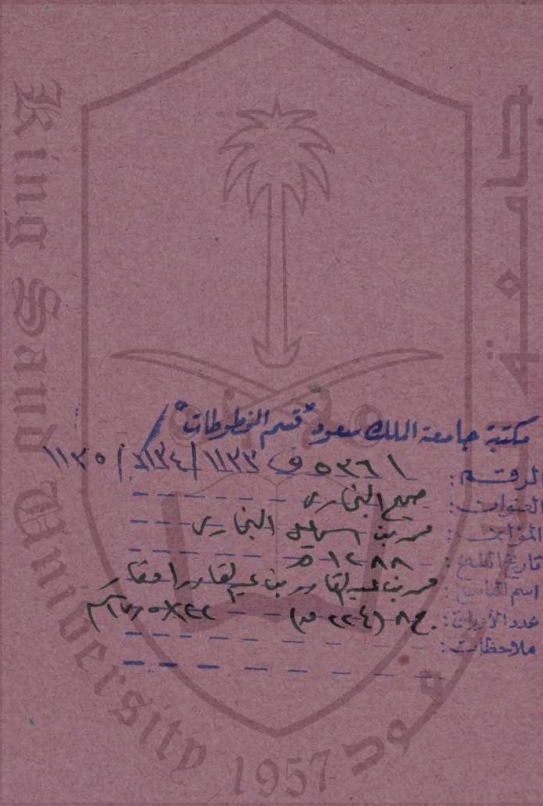 King Saud University 1957
جامعة
مكتبة جامعة الملك سعود "قسم المخطوطات"
الرقم: ٥٣٦١ ف ١١٣٣ / ١١٣٥
العنوان: صحيح البخاري
المؤلف: محمد بن اسماعيل البخاري
تاريخ النسخ: ١٢٨٨ هـ
اسم الناسخ: محمد بن عبدالقادر بن عبدالقادر
عدد الأوراق: ج ٨ (٢٢٤ ور)
ملاحظات: